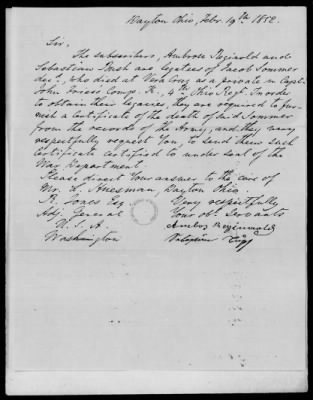 Dayton Ohio, Febr. 19th 1852.
Sir,
The subscribers, Ambros Reginold and
Sebastian are legatees of Jacob Sommer
decd., who died at Vera Cruz as a private in Capt.
John Comp. K., 4th Ohio Regt. In order
to obtain their legacies, they are required to fur-
nish a Certificate of the death of said Sommer
from the records of the Army, and they very
respectfully request You, to send them such
Certificate certified to under seal of the
War Department.
Please direct Your answer to the care of
Mr. Dayton Ohio.
R. Jones Esq. Very respectfully
Adj. General Your obt. Servants
U.S.A. Ambros Reginold
Washington